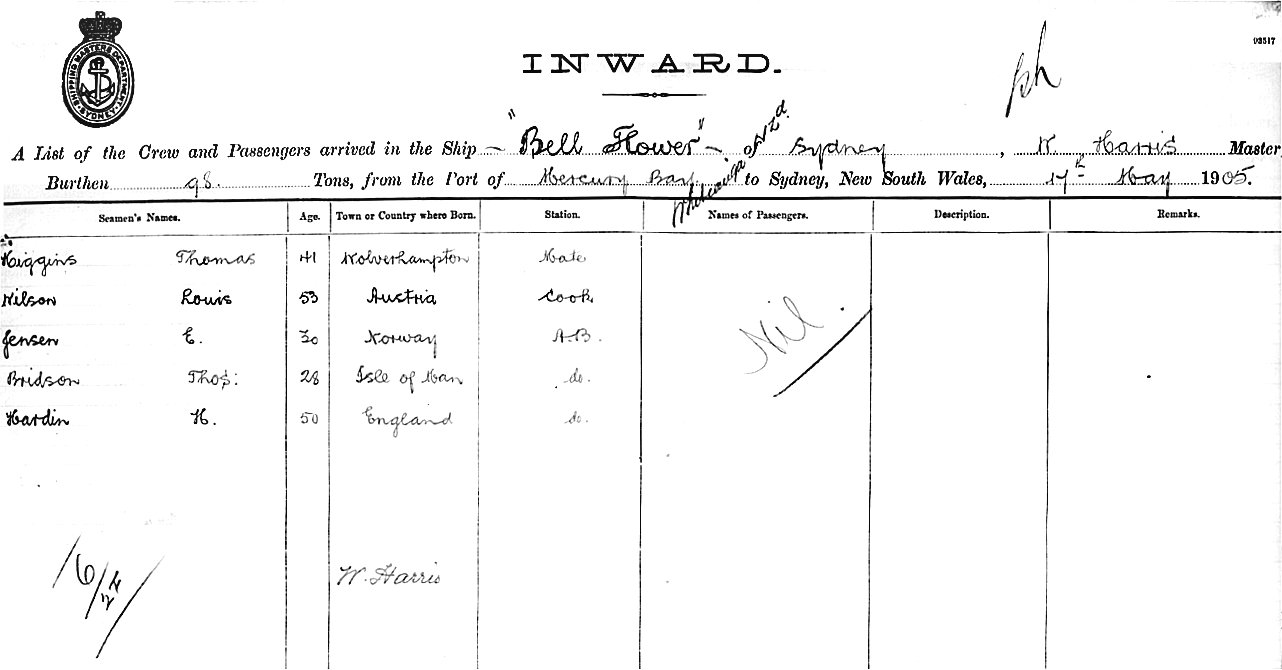 SHIPPING MASTERS DEPARTMENT SYDNEY
93517
INWARD.
A List of the Crew and Passengers arrived in the Ship "Bell Flower" of Sydney, W. Harris Master
NZd
Burthen 98. Tons, from the Port of Mercury Bay to Sydney, New South Wales, 17th May 1905.
Seamen's Names. Age. Town or Country where Born. Station. Names of Passengers. Description. Remarks.
Higgins Thomas 41 Wolverhampton Mate
Wilson Louis 53 Austria Cook
Jensen E. 30 Norway A.B.
Nil.
Bridson Thos: 28 Isle of Man do.
Hardin H. 50 England do.
W. Harris